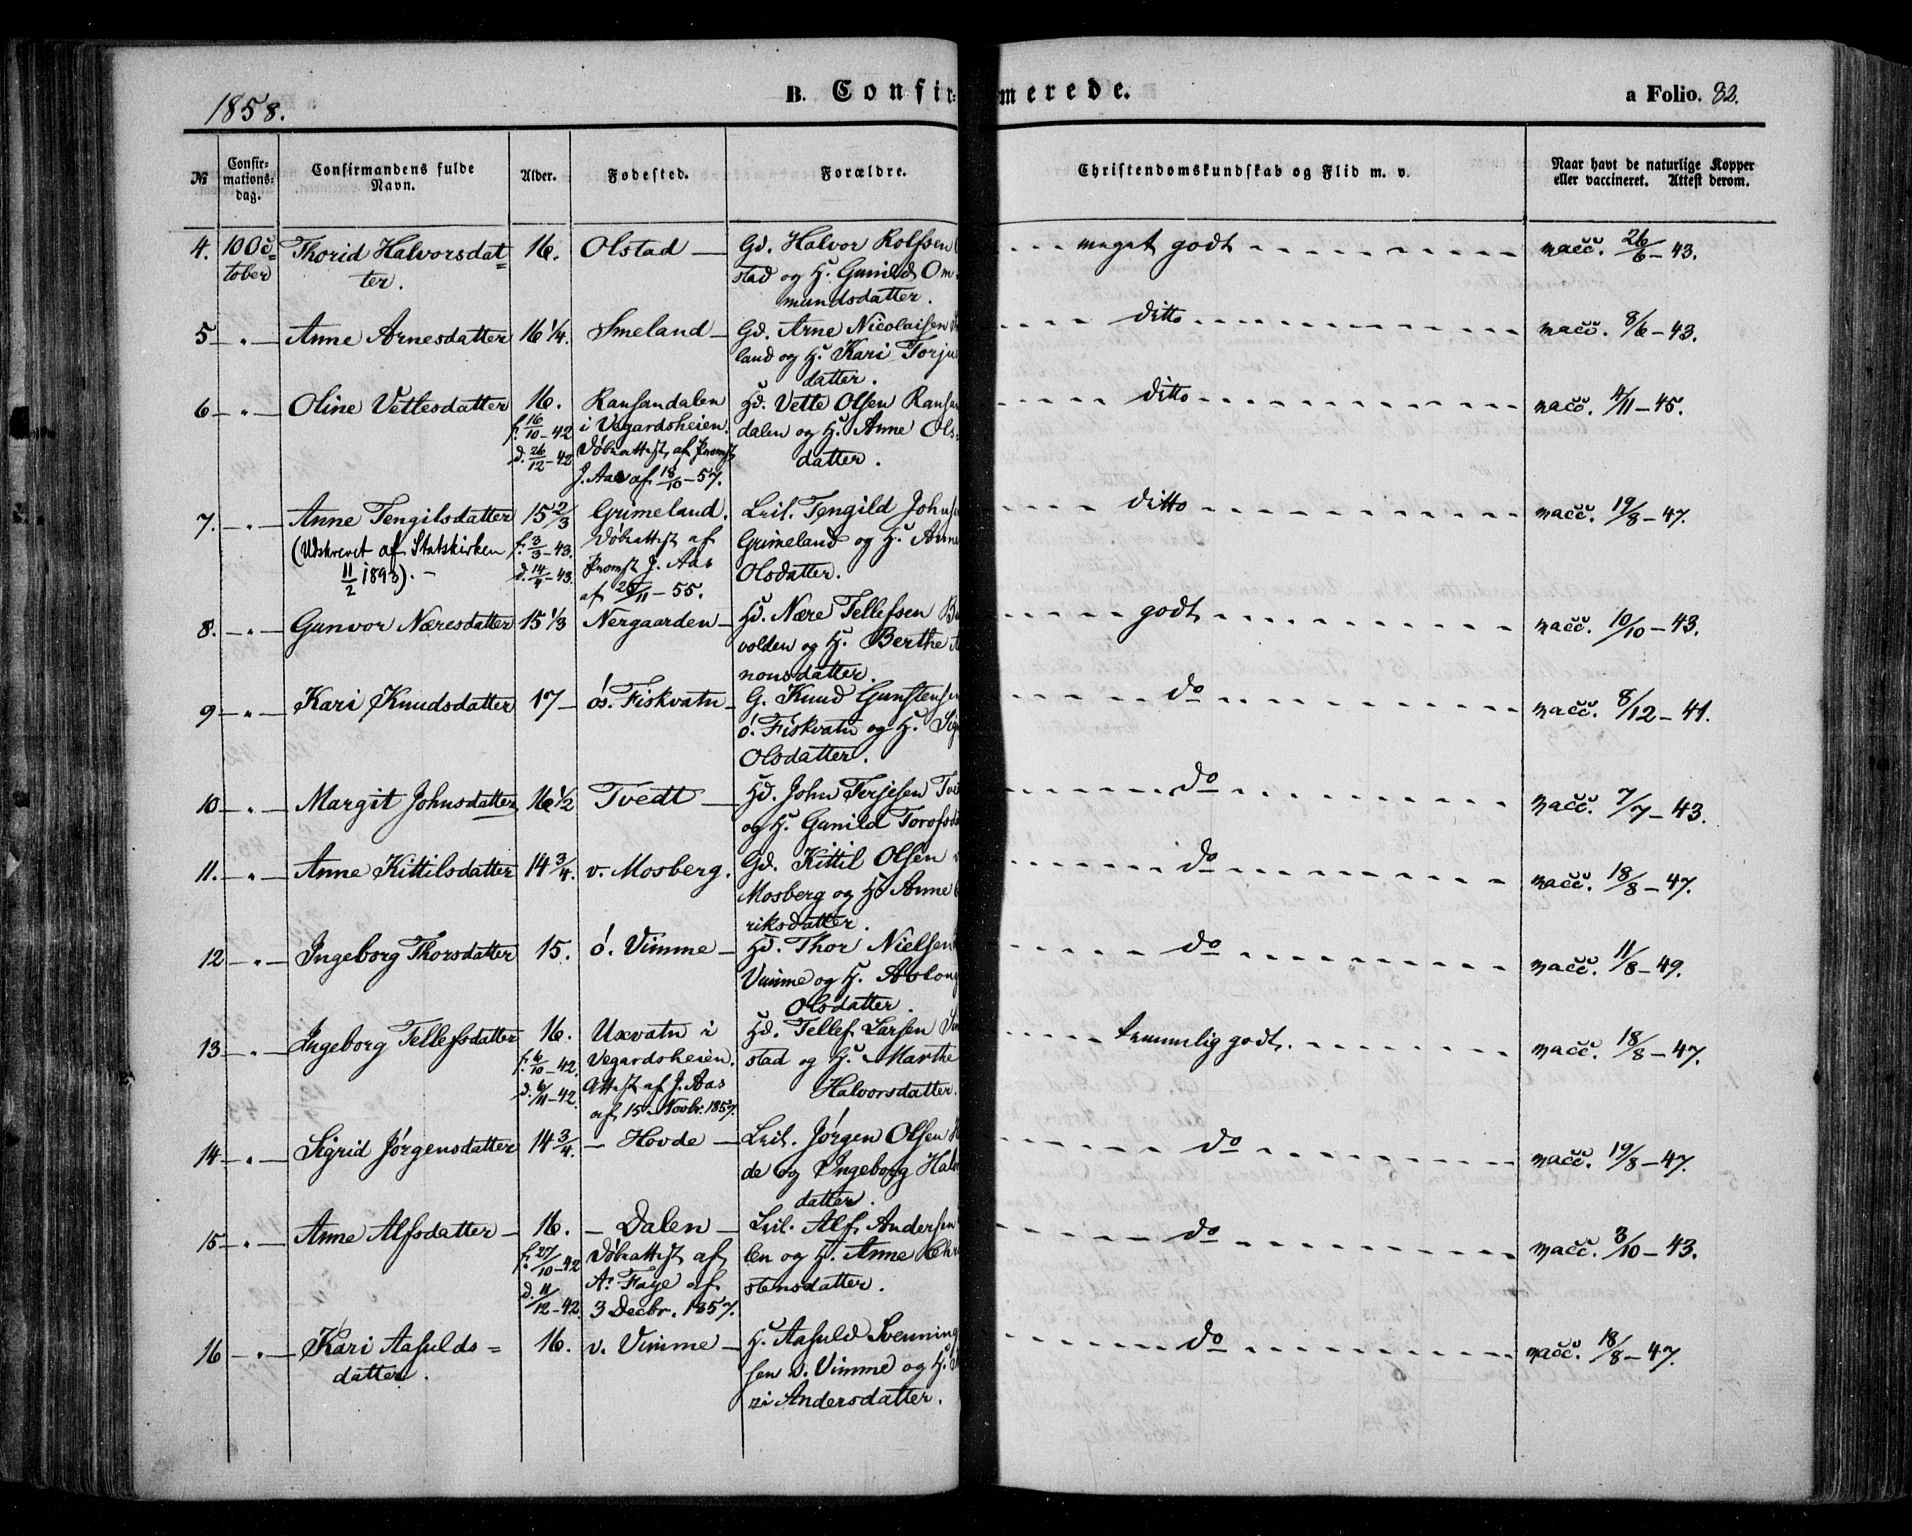 1858.
B. Confir=merede.
a Folio. 82.
No
Confirmations=dag.
Confirmandens fulde Navn.
Alder.
Fødested.
Forældre.
Christendomskundskab og Flid m. v.
Naar havt de naturlige Kopper eller vaccineret. Attest derom.
4. 10 Oc= Thorid Halvorsdat= 16. Olstad — Gd. Halvor Rolfsen meget godt vacc. 26/6 - 43.
tober ter. stad og H. Gunild Om
mundsdatter.
5 — " — Anne Arnesdatter 16 1/4. Smeland — Gd. Arne Nicolaisen ditto vacc. 8/6 - 43.
land og H. Kari Torju
datter.
6 — " — Oline Vettesdatter 16. Ransandalen Hd. Vette Olsen Ransan ditto vacc. 4/11 - 45.
f. 16/10 - 42 i Vegardsheien. dalen og H. Anne Ols=
d. 26/12 - 42 Døbeattest af Provst datter.
J. Aas af 18/10 - 57.
7. — " — Anne Tengilsdatter 15 2/3 Grimeland. Leil. Tengild Johns ditto vacc. 19/8 - 47.
(Udskrevet af Statskirken f. 3/3 - 43. Døbeattest af Grimeland og H. Anne
11/2 1893). — d. 14/4 - 43. Provst J. Aas Olsdatter.
af /11 - 55.
8. — " — Gunvor Næresdatter 15 1/3 Nergaarden — Hd. Nære Tellefsen godt vacc. 10/10 - 43.
volden og H. Berthe
nonsdatter.
9 — " — Kari Knudsdatter 17 — ós. Fiskvatn — G. Knud Gunstensen do vacc. 8/12 - 41.
ó. Fiskvatn og H. Sig
Olsdatter.
10 — " — Margit Johnsdatter 16 1/2 Tvedt — Hd. John Terjesen Tve do vacc. 7/7 - 43.
og H. Gunild Torofsd
11. — " — Anne Kittilsdatter 14 3/4. v. Mosberg. Gd. Kittil Olsen do vacc. 18/8 - 47.
Mosberg og H. Anne
riksdatter.
12 — " — Ingeborg Thorsdatter 15. ó. Vimme — Hd. Thor Nielsen do vacc. 11/8 - 49.
Vimme og H. Aslong
Olsdatter.
13 — " — Ingeborg Tellefsdatter 16. Uxvatn i Hd. Tellef Larsen temmelig godt. vacc. 18/8 - 47.
f. 6/10 - 42. Vegardsheien. stad og H. Marthe
d. 6/11 - 42. Attest af J. Aas Halvorsdatter.
af 15. Novbr. 1857.
14 — " — Sigrid Jørgensdatter 14 3/4. — Hovde — Leil. Jørgen Olsen do vacc. 19/8 - 47.
de og Ingeborg Halv
datter.
15 — " — Anne Alfsdatter — 16. — Dalen — Leil. Alf Andersen do vacc. 3/10 - 43.
f. 27/10 - 42 Døbeattest af len og H. Anne Chri
d. 11/12 - 42. A. Faye af stensdatter.
3 Decbr. 1857.
16 — " — Kari Aasulds= 16. v. Vimme — H. Aasuld Svenning do vacc. 18/8 - 47.
datter. sen v. Vimme og H.
ri Andersdatter.